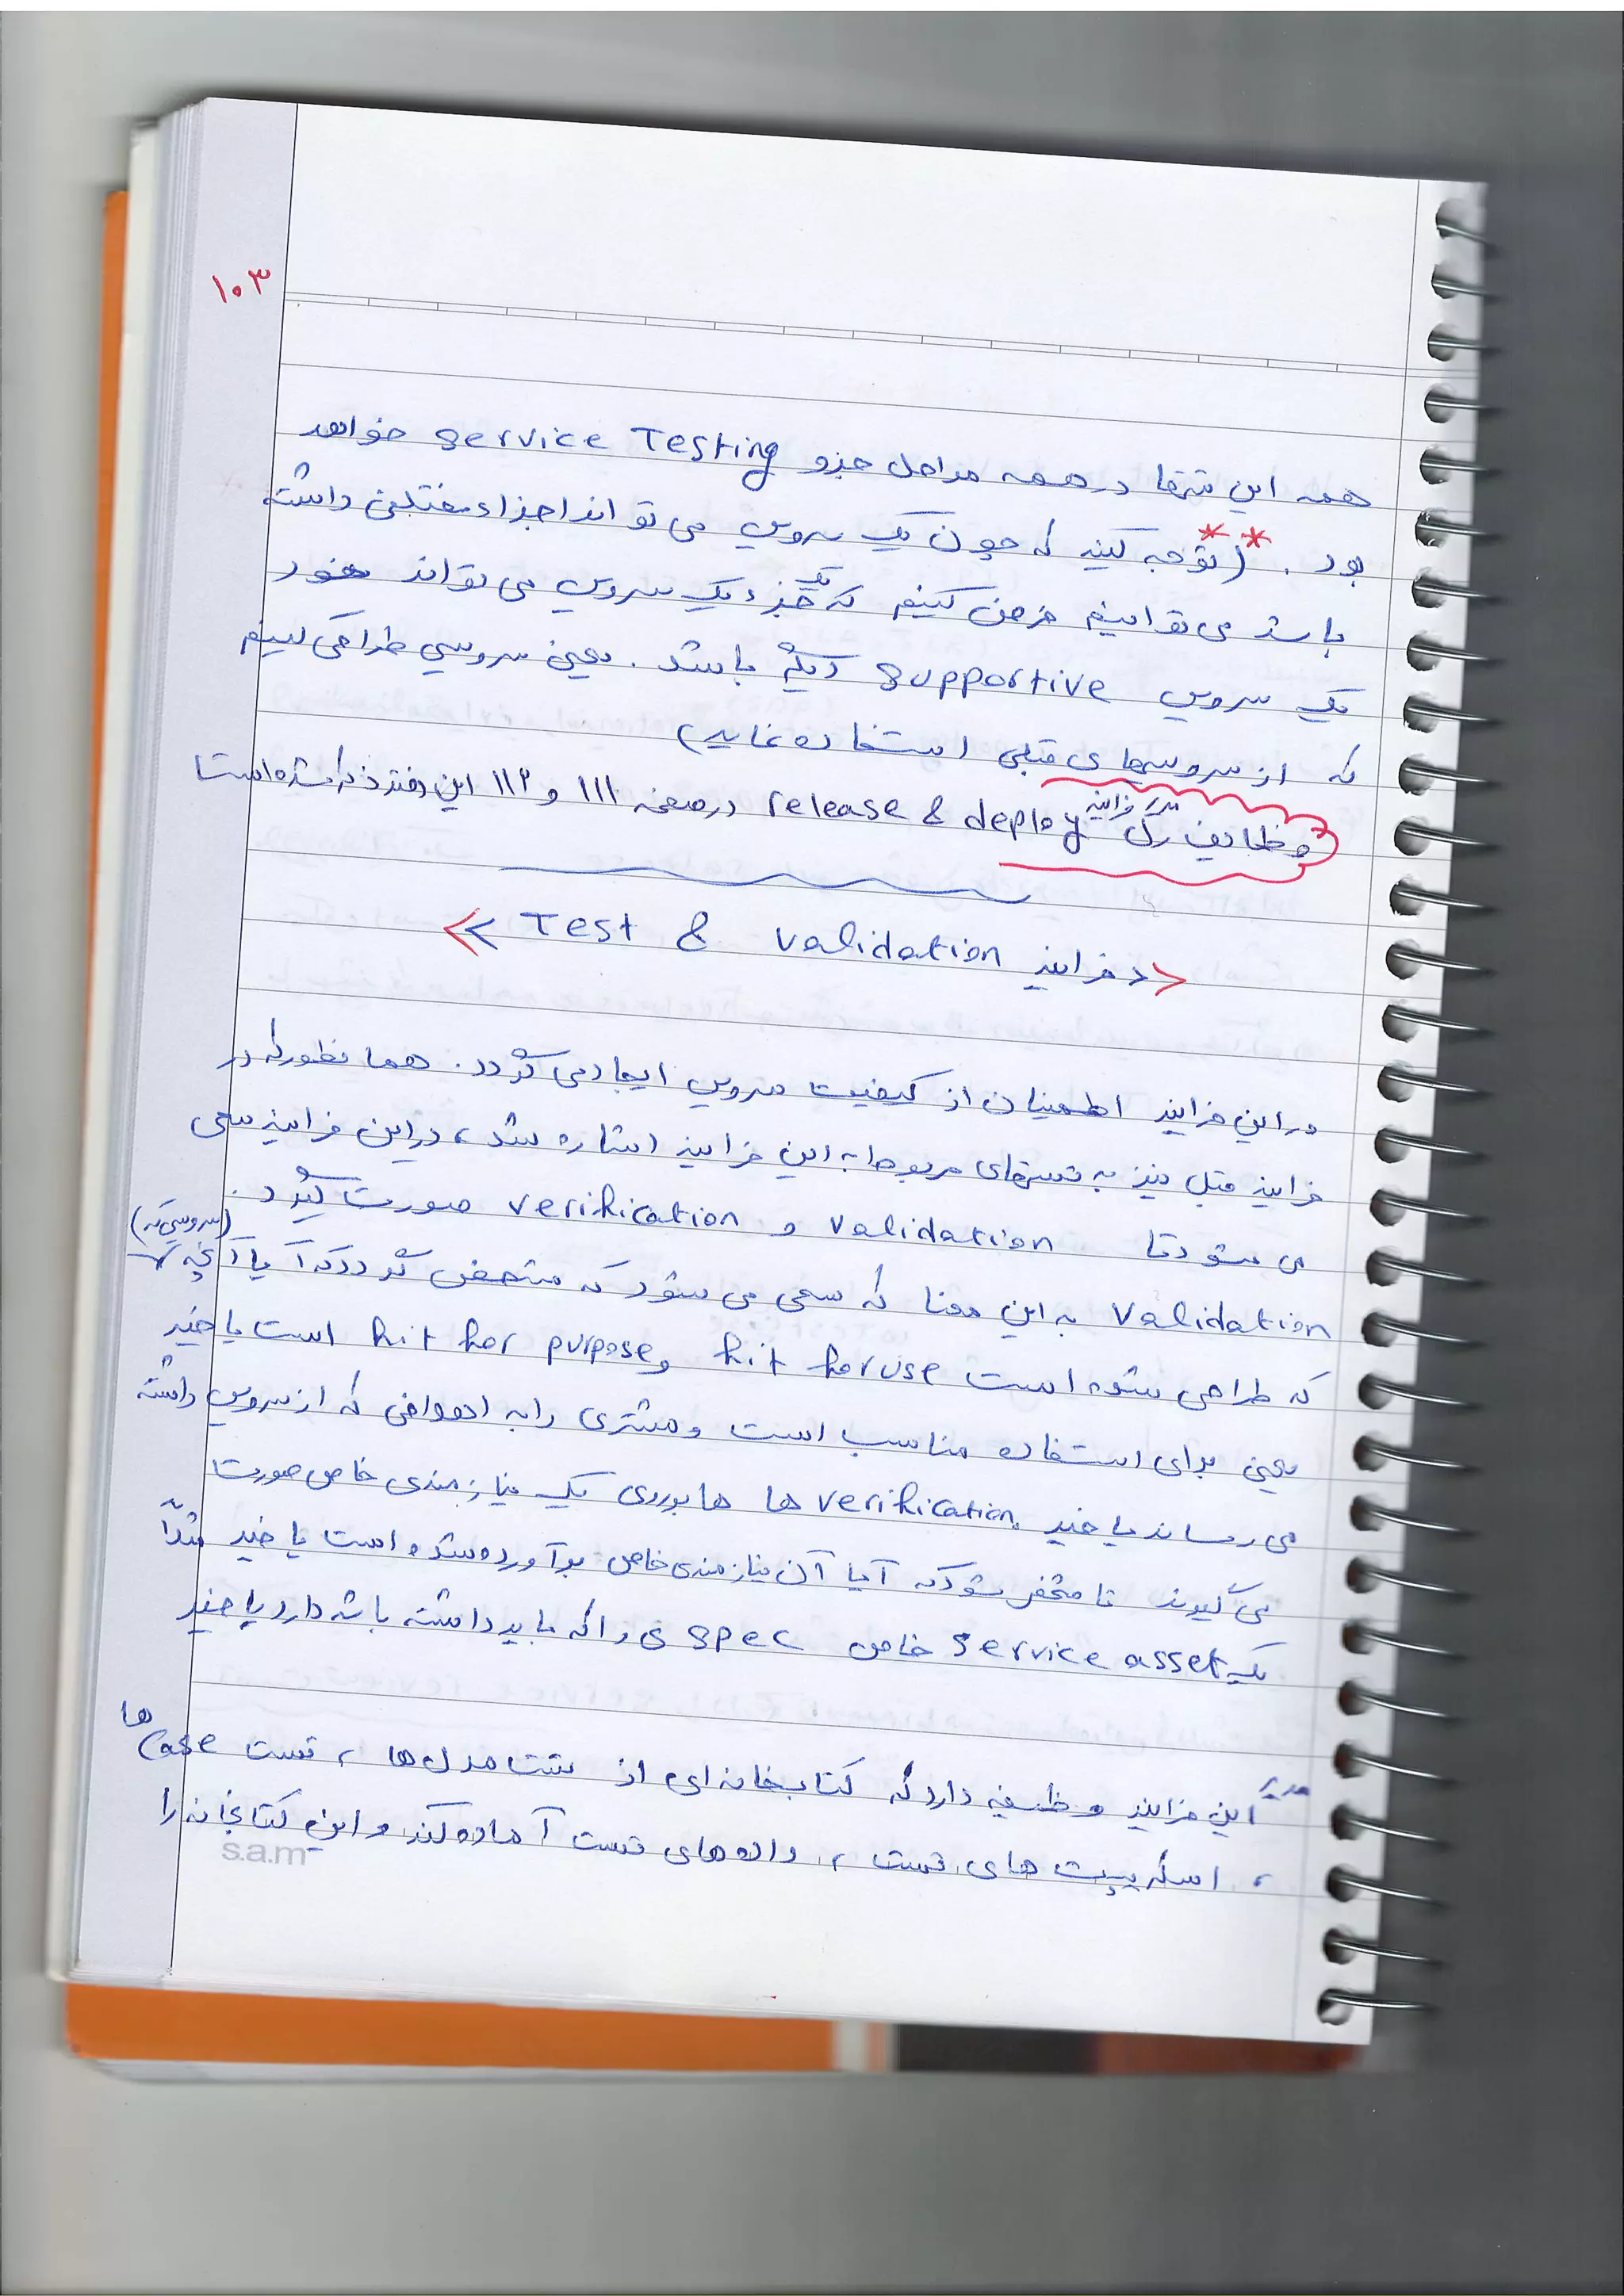 ۱۰۳
همه این تستها در همه مراحل جزو Service Testing خواهد
بود. ** (توجه کنید که چون یک سرویس می تواند اجزاء مختلفی داشته
باشد می توانیم فرض کنیم که یک جزء یک سرویس می تواند خود
یک سرویس supportive دیگه باشد. یعنی سرویسی طراحی کنیم
که از سرویسهای قبلی استفاده نماید)
وظایف مدیر فرایند release & deploy در صفحه ۱۱۱ و ۱۱۲ این دفتر ذکر شده است
<< فرایند Test & validation >>
در این فرایند اطمینان از کیفیت سرویس ایجاد می گردد. همانطور که در
فرایند قبل نیز به تستهای مربوط به این فرایند اشاره شد، در این فرایند سعی
می شود تا validation و verification صورت گیرد.
validation به این معنا که سعی می شود که مشخص گردد که آیا آنچه (سرویسی که)
که طراحی شده است fit for use و fit for purpose است یا خیر
یعنی برای استفاده مناسب است و مشتری را به اهدافی که از سرویس داشته
می رساند یا خیر. verification ها بر روی یک نیازمندی خاص صورت
می گیرند تا مشخص شود که آیا آن نیازمندی خاص برآورده شده است یا خیر مثلاً
یک service asset خاص spec ی را که باید داشته باشد دارد یا خیر
مدیر این فرایند وظیفه دارد که کتابخانه ای از تست مدل ها، تست case ها
، اسکریپت های تست، داده های تست آماده کند و این کتابخانه را
s.a.m